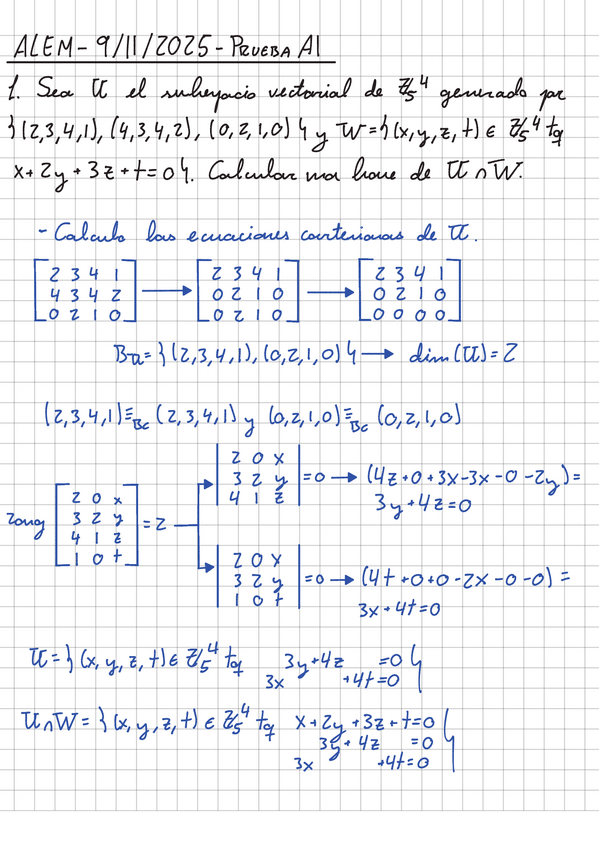 ALEM - 9/11/2025 - PRUEBA A1
1. Sea U el subespacio vectorial de ℤ₅⁴ generado por
{(2,3,4,1), (4,3,4,2), (0,2,1,0)} y W={(x,y,z,t) ∈ ℤ₅⁴ tq
x+2y+3z+t=0}. Calcular una base de U∩W.
- Calculo las ecuaciones cartesianas de U.
[2 3 4 1; 4 3 4 2; 0 2 1 0] → [2 3 4 1; 0 2 1 0; 0 2 1 0] → [2 3 4 1; 0 2 1 0; 0 0 0 0]
B_U = {(2,3,4,1), (0,2,1,0)} → dim(U)=2
(2,3,4,1)≡_Bc (2,3,4,1) y (0,2,1,0)≡_Bc (0,2,1,0)
|2 0 x; 3 2 y; 4 1 z| = 0 → (4z+0+3x-3x-0-2y)=
3y+4z=0
rang [2 0 x; 3 2 y; 4 1 z; 1 0 t] = 2
|2 0 x; 3 2 y; 1 0 t| = 0 → (4t+0+0-2x-0-0)=
3x+4t=0
U={(x,y,z,t) ∈ ℤ₅⁴ tq 3y+4z =0}
3x +4t=0
U∩W={(x,y,z,t) ∈ ℤ₅⁴ tq x+2y+3z+t=0}
3y+4z =0
3x +4t=0